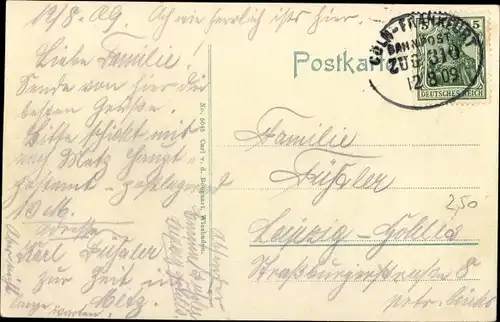 12/8. 09. Ach wie herrlich ists hier.
Liebe Familie.
Sende von hier die
besten Grüße.
Bitte schickt mit
nach Metz Haupt-
postamt - postlagernd
10 M.
Adresse
Karl Füßler
zur Zeit in
Metz.
warten.
Postkarte
No. 5048 Carl v. d. Boogaart, Wiesbaden.
CÖLN-FRANKFURT
BAHNPOST
ZUG 310
12 8 09
5
DEUTSCHES REICH
Familie
Füßler
Leipzig-Gohlis
Straßburgerstraße 8
2,50